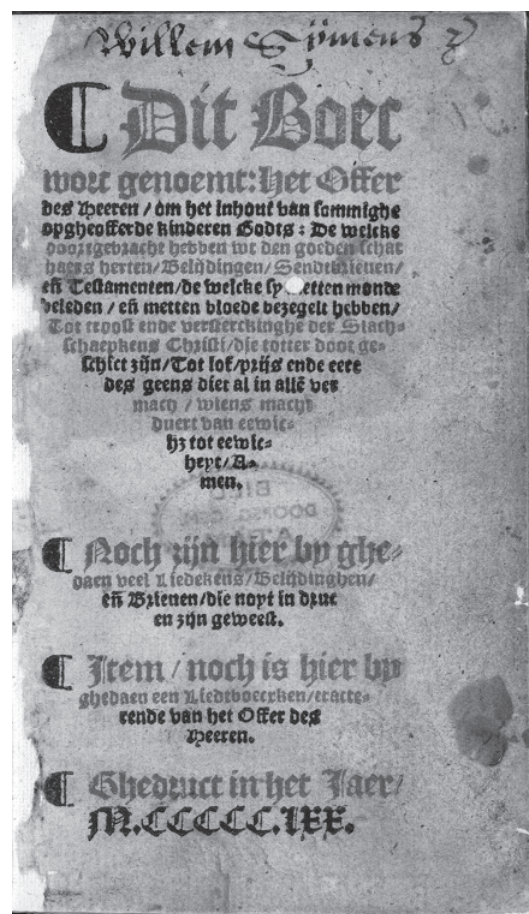 Willem Sijmens
¶ Dit Boec
wort genoemt: Het Offer
des Heeren / om het inhout van sommighe
opgheofferde kinderen Godts: De welcke
voortgebracht hebben wt den goeden schat
haers herten / Belijdingen / Sendtbrieuen /
eñ Testamenten / de welcke sy metten monde
beleden / eñ metten bloede bezegelt hebben /
Tot troost ende versterckinghe der Slach-
schaepkens Christi / die totter doot ge-
schict zijn / Tot lof / prijs ende eere
des geens diet al in allẽ ver
mach / wiens macht
duert van eewic-
hz tot eewic-
heyt / A-
men.
¶ Noch zijn hier by ghe-
daen veel Liedekens / Belijdinghen /
eñ Brieuen / die noyt in druc
en zijn geweest.
¶ Item / noch is hier by
ghedaen een Liedtboecxken / tracte-
rende van het Offer des
Heeren.
¶ Ghedruct in het Jaer /
M.CCCCC.LXX.